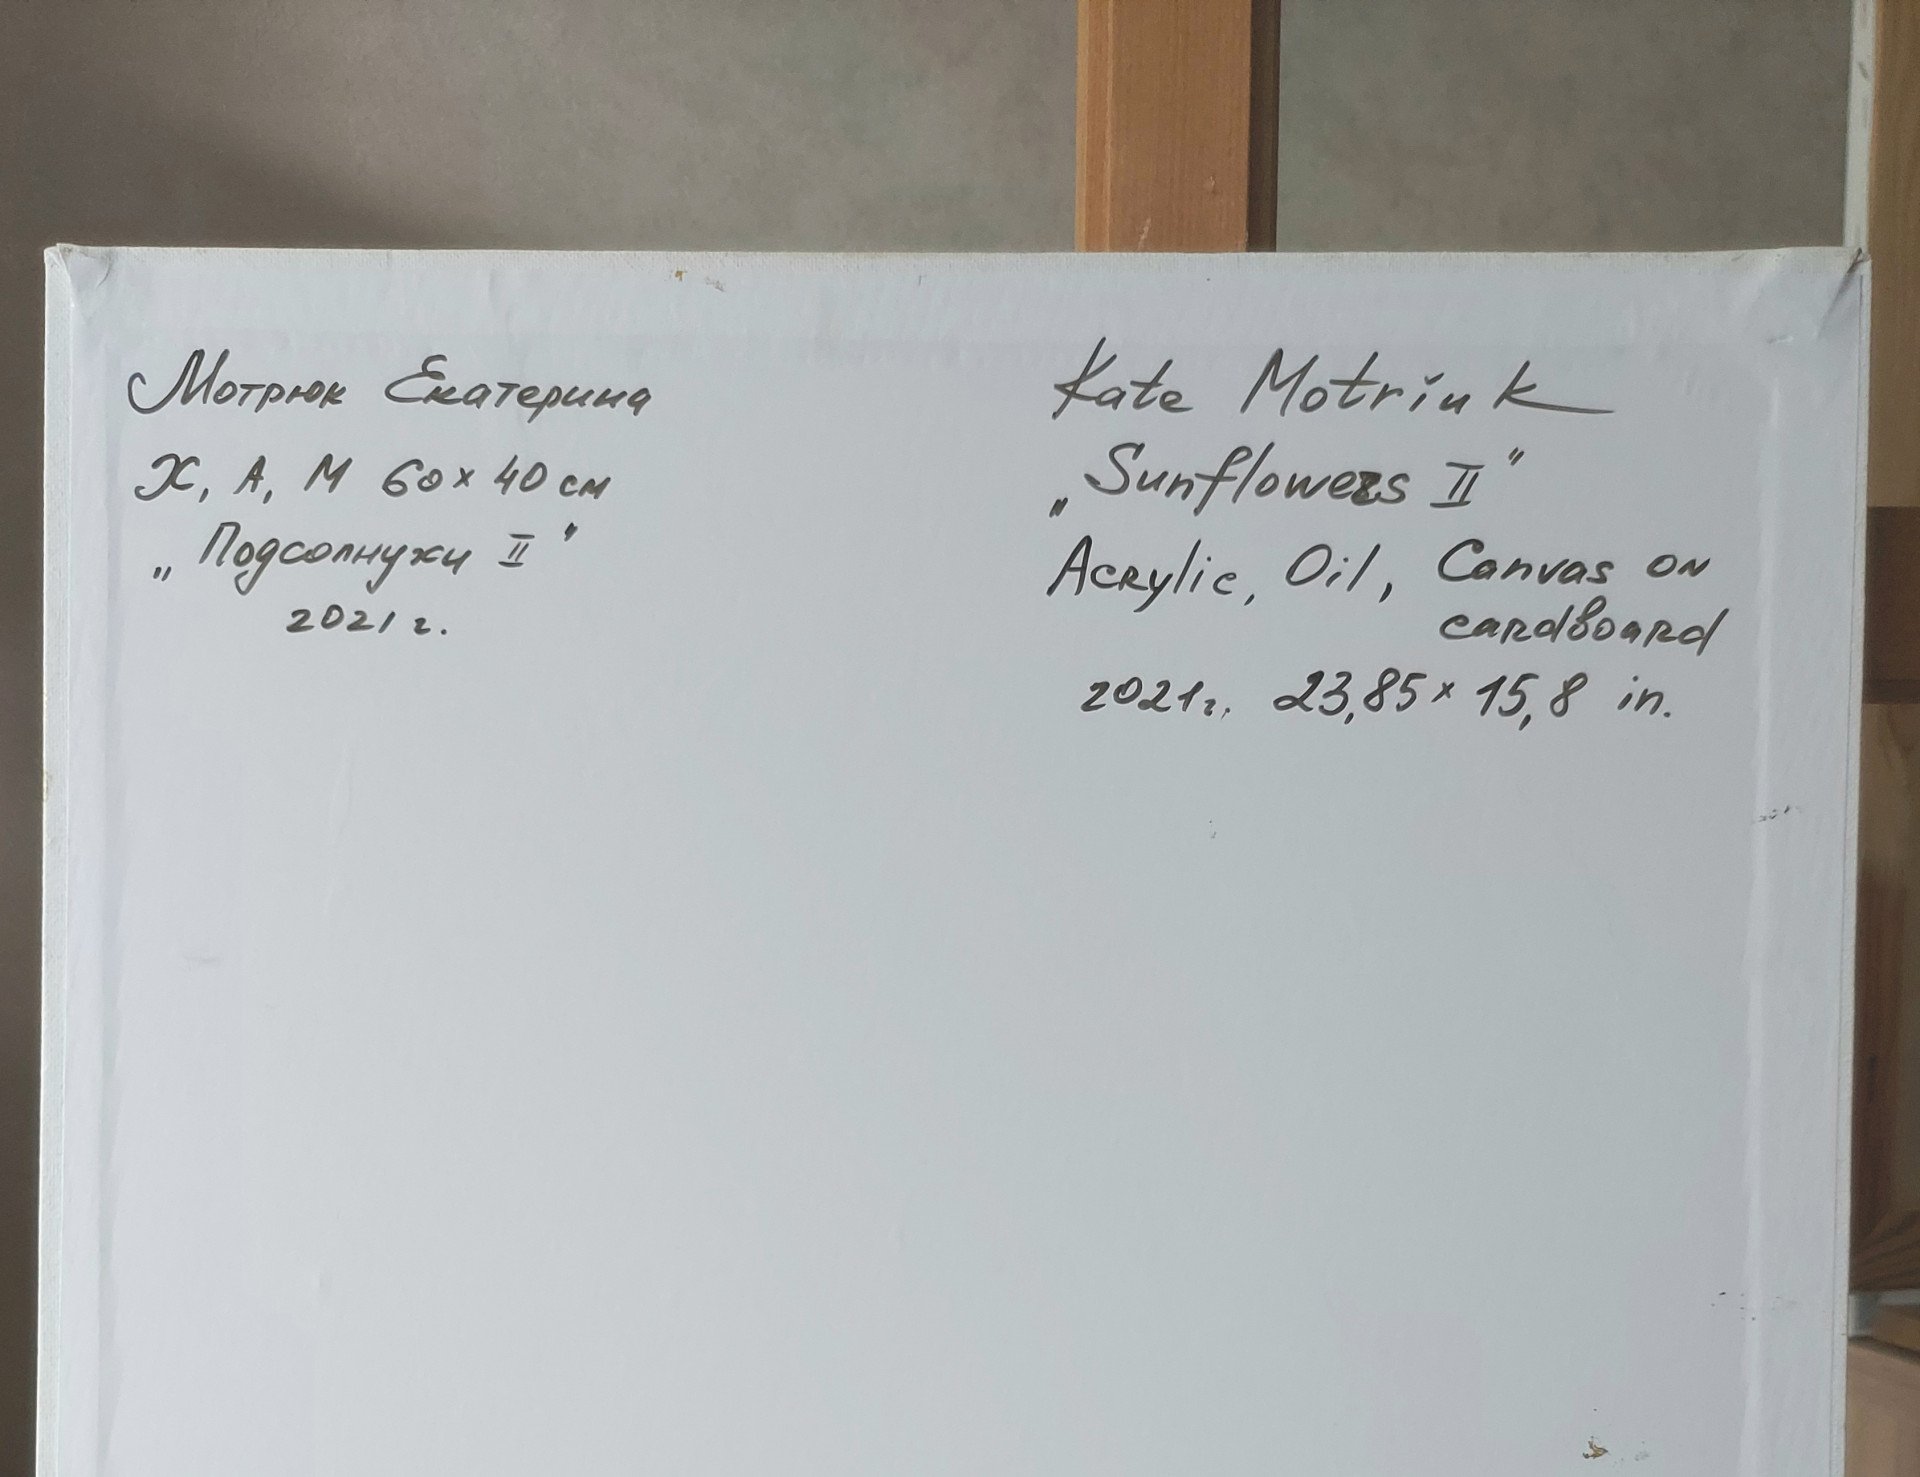 Мотрюк Екатерина
Х, А, М 60×40 см
„Подсолнухи II"
2021 г.
Kate Motriuk
„Sunflowers II"
Acrylic, Oil, Canvas on
cardboard
2021г. 23,85×15,8 in.